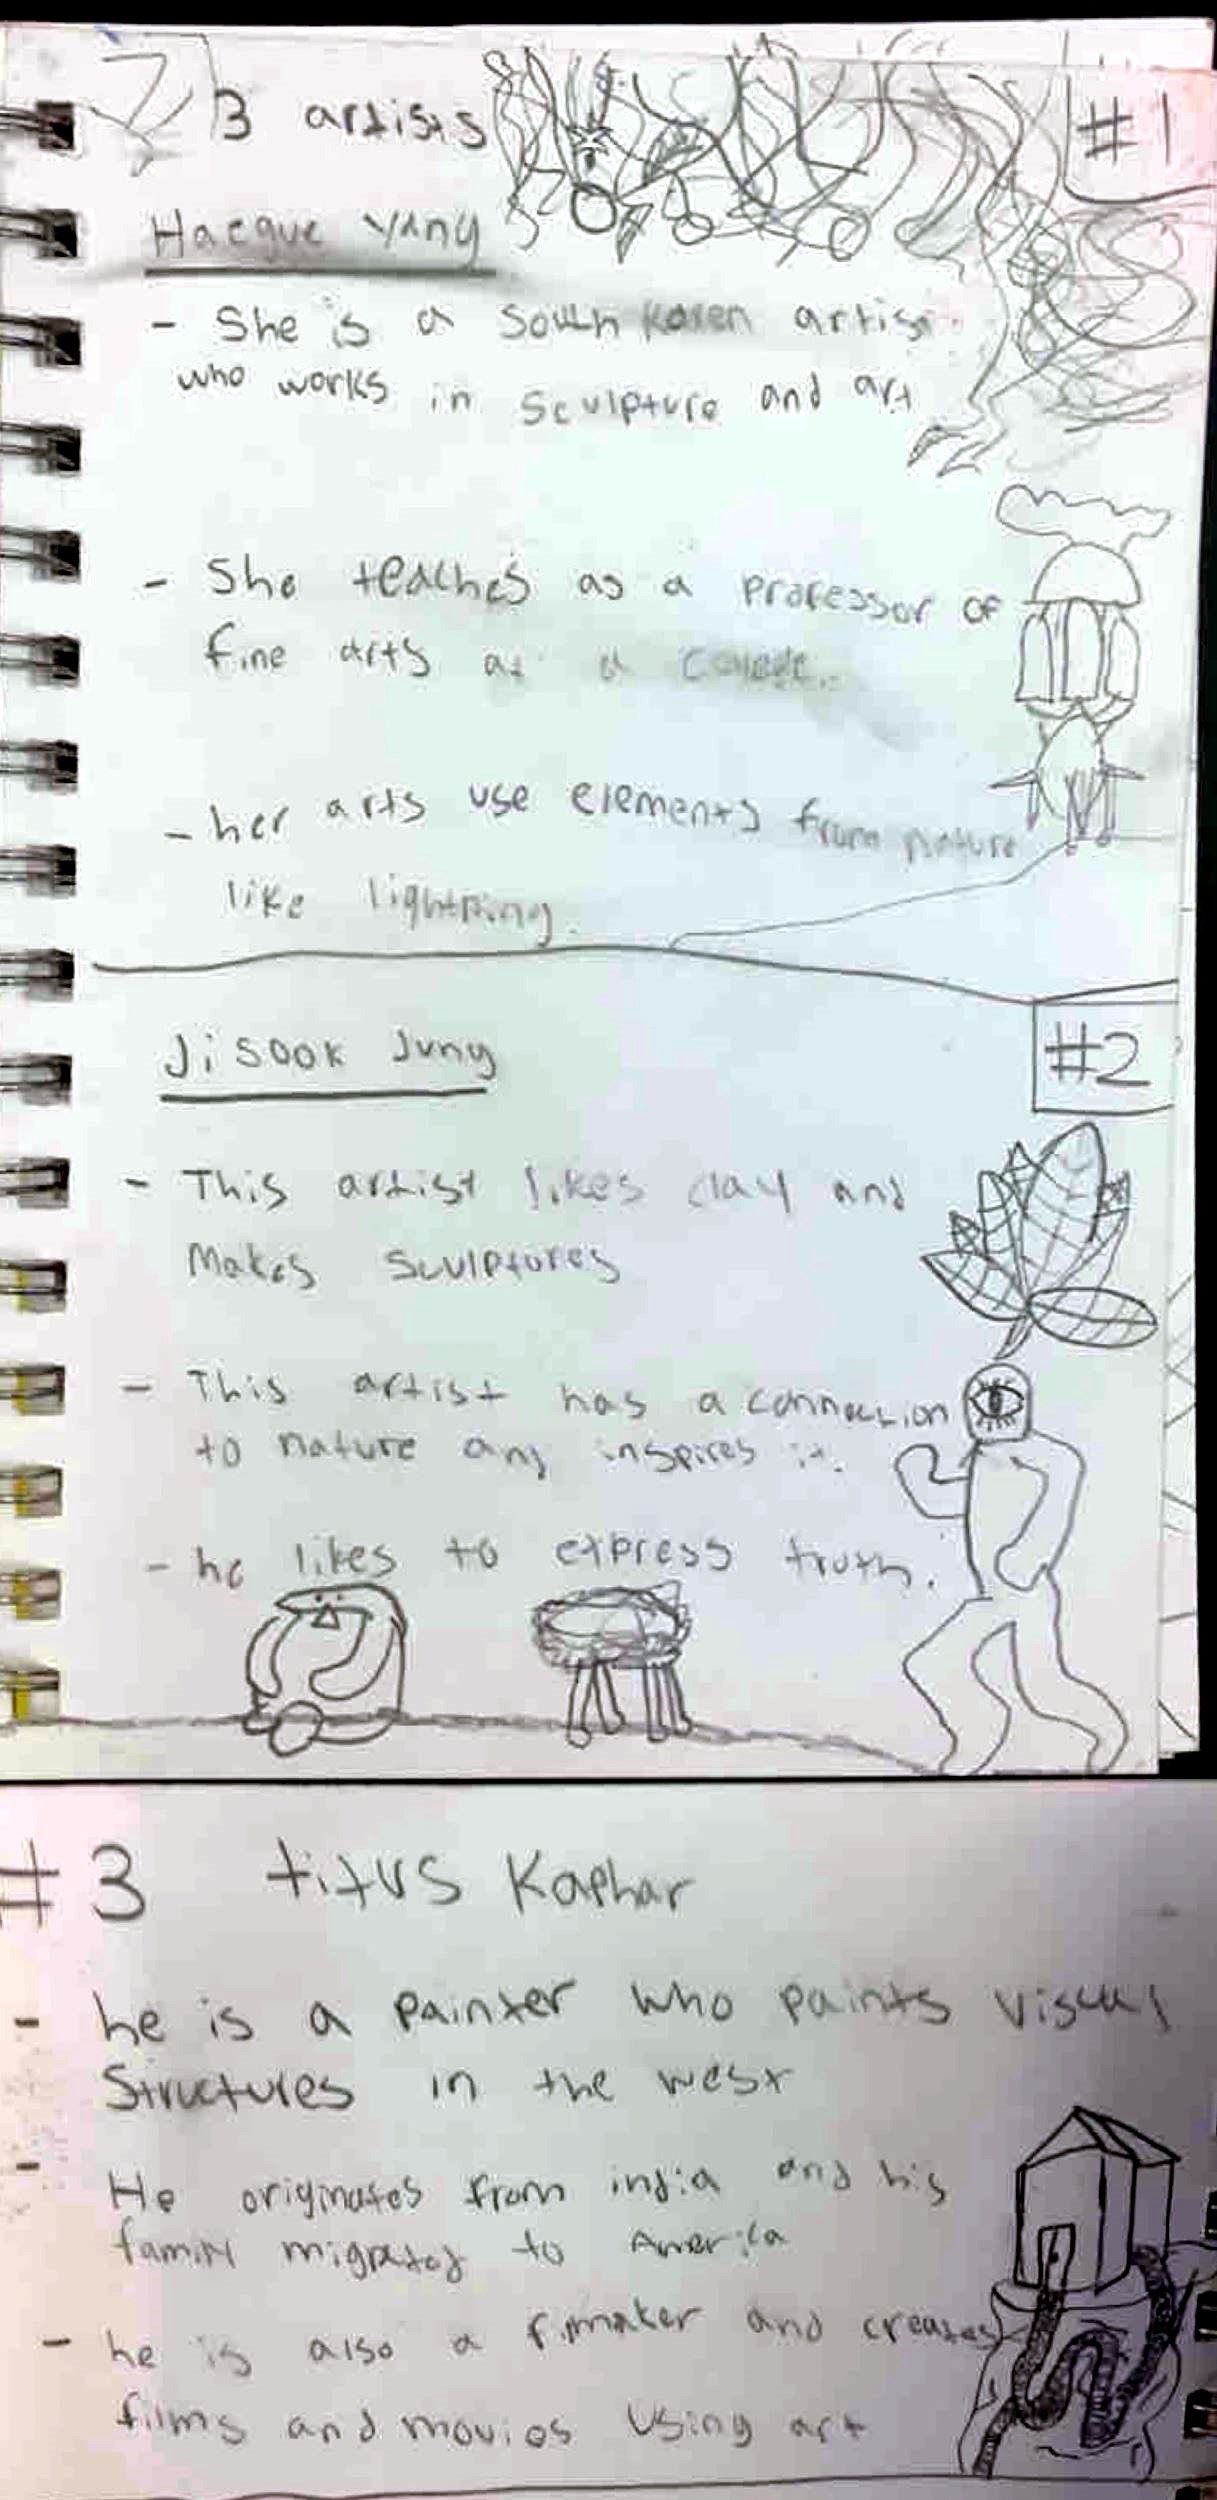 3 artists
#1
Haegue Yang
- She is a South Koren artist
who works in sculpture and art
- She teaches as a professor of
fine arts at a
- her arts use elements from nature
like lightning.
Ji sook Jung
#2
- This artist likes clay and
Makes sculptures
- This artist has a connection
to nature any inspires it.
- he likes to express truth.
#3 titus Kaphar
- he is a painter who paints visual
Structures in the west
- He originates from india and his
family migrated to America
- he is also a and creates
films and movies using art